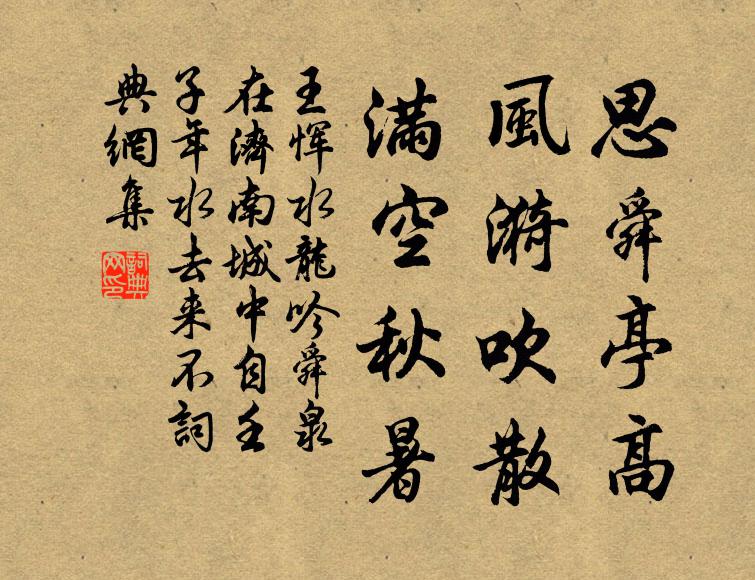 思舜亭高
風漪吹散
滿空秋暑
王惲水龍吟舜泉
在濟南城中自壬
子年水去来不詞
典網集
詞典網印